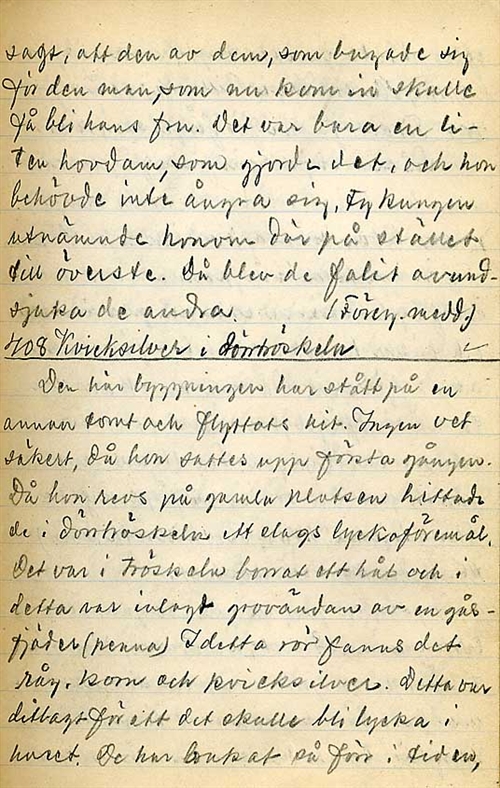 sagt, att den av dem, som bugade sig
för den man, som nu kom in skulle
få bli hans fru. Det var bara en li-
ten hovdam, som gjorde det, och hon
behövde inte ångra sig, ty kungen
utnämnde honom där på stället
till överste. Då blev de falit avund-
sjuka de andra. (Föreg. medd.)
708 Kvicksilver i dörrtröskeln
Den här byggningen har stått på en
annan tomt och flyttats hit. Ingen vet
säkert, då hon sattes upp första gången.
Då hon revs på gamla platsen hittade
de i dörrtröskeln ett slags lyckoföremål.
Det var i tröskeln borrat ett hål och i
detta var inlagt grovändan av en gås-
fjäder (penna) I detta rör fanns det
råg, korn och kvicksilver. Detta var
ditlagt för att det skulle bli lycka i
huset. De har brukat så förr i tiden,